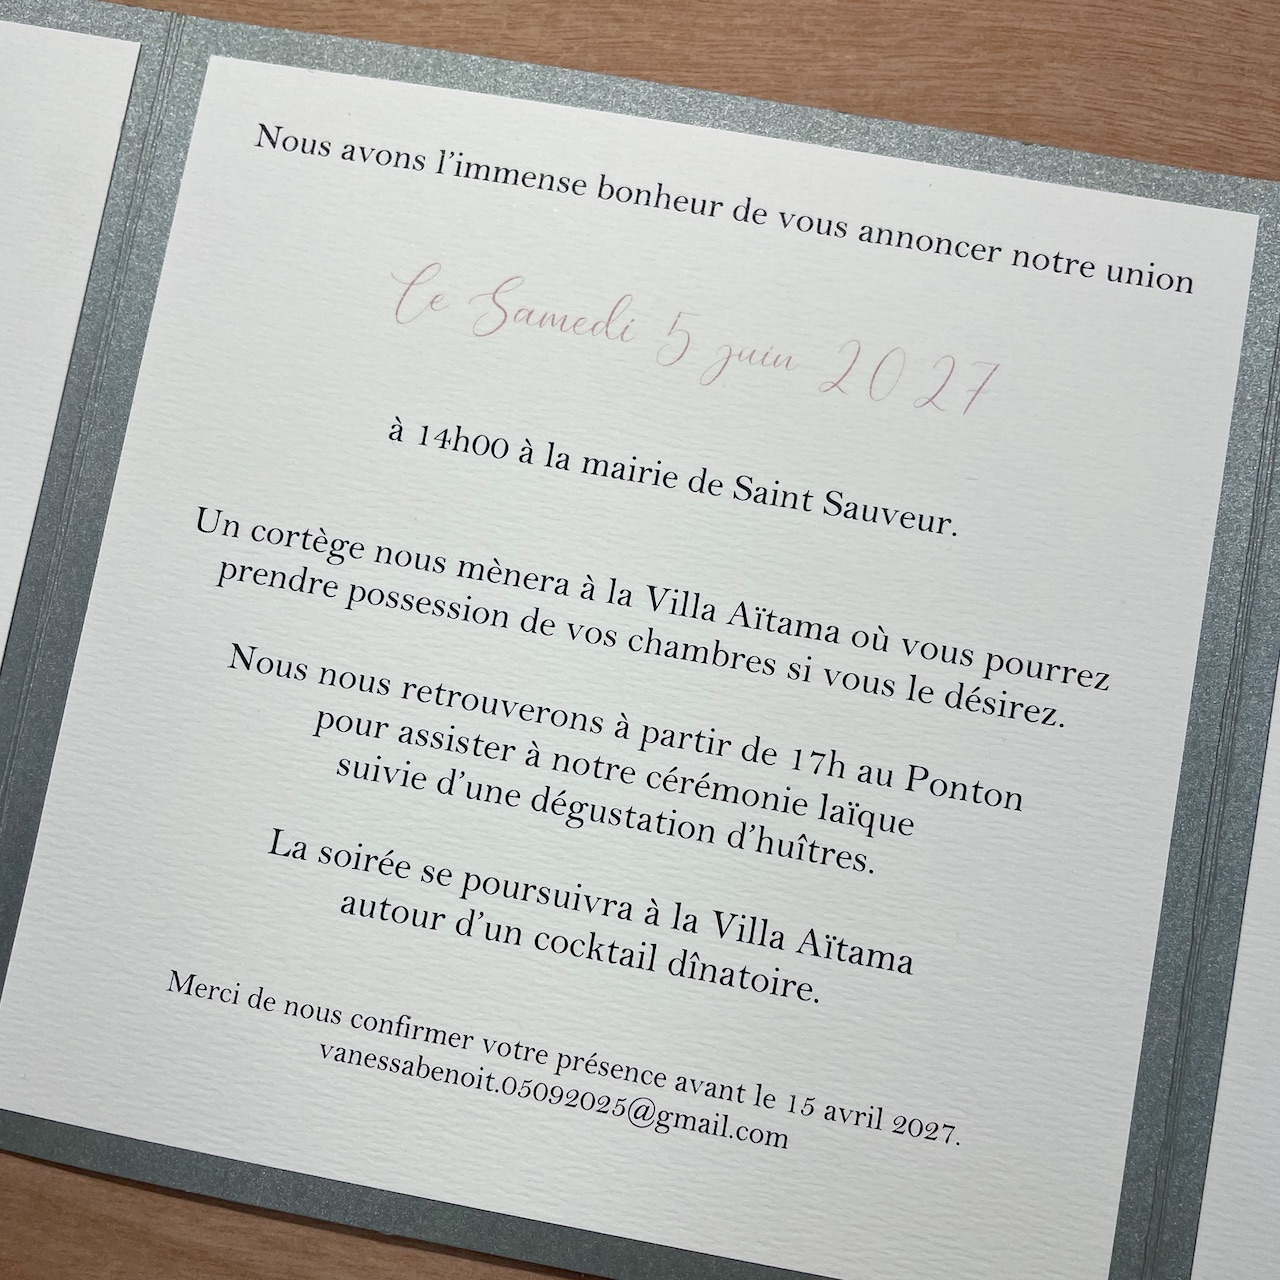 Nous avons l'immense bonheur de vous annoncer notre union
Le Samedi 5 juin 2027
à 14h00 à la mairie de Saint Sauveur.
Un cortège nous mènera à la Villa Aïtama où vous pourrez
prendre possession de vos chambres si vous le désirez.
Nous nous retrouverons à partir de 17h au Ponton
pour assister à notre cérémonie laïque
suivie d'une dégustation d'huîtres.
La soirée se poursuivra à la Villa Aïtama
autour d'un cocktail dînatoire.
Merci de nous confirmer votre présence avant le 15 avril 2027.
vanessabenoit.05092025@gmail.com